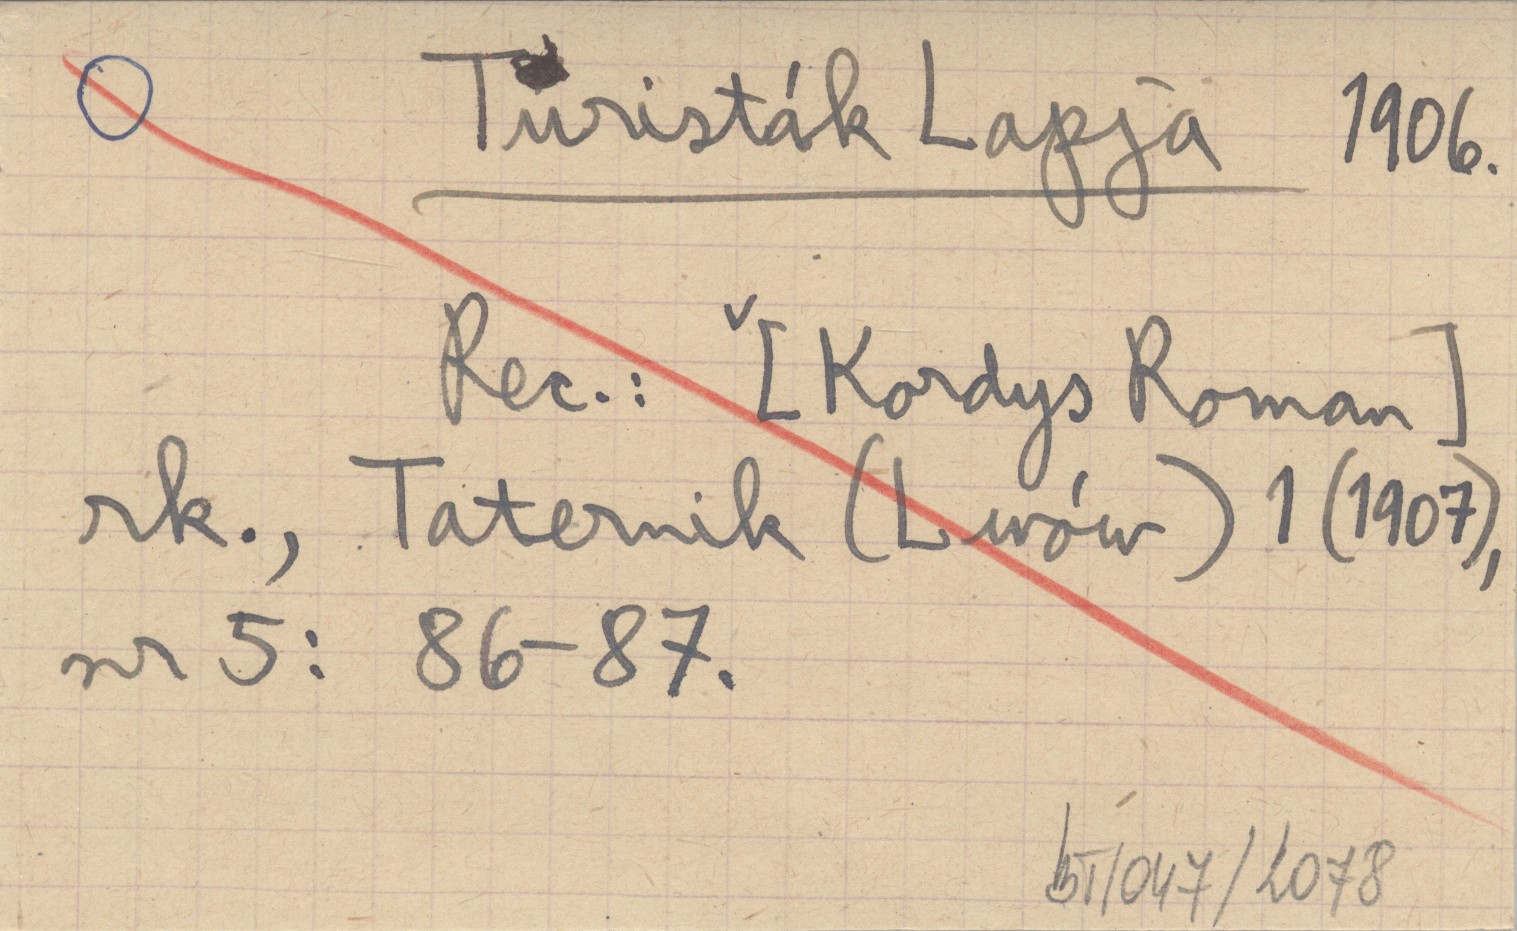 Turisták Lapja 1906.
Rec.: ˇ[Kordys Roman]
rk., Taternik (Lwów) 1 (1907),
nr 5: 86-87.
bT/047/2078